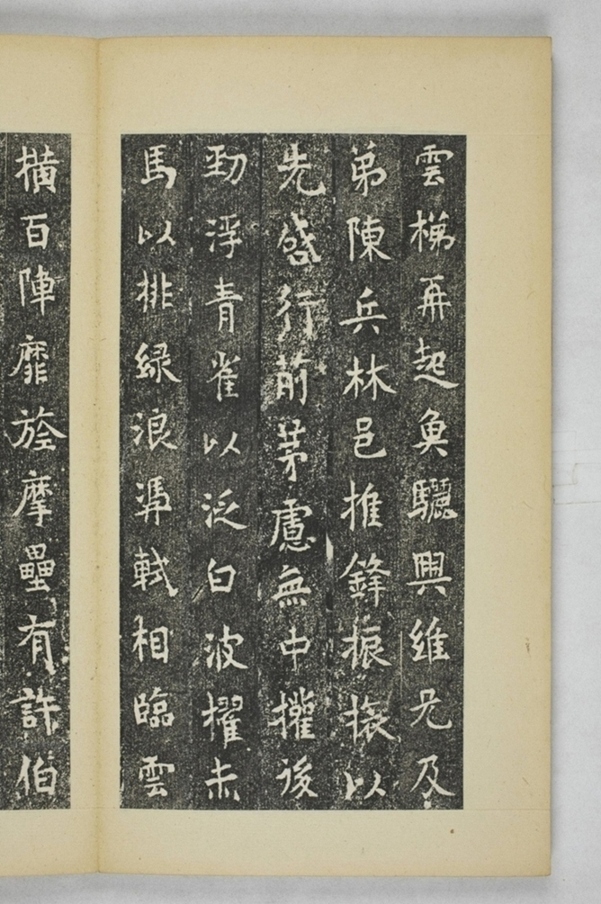 雲梯再起魚驪興維兄及
弟陳兵林邑推鋒振旅以
先啓行前茅慮無中權後
勁浮青雀以泛白波櫂赤
馬以排緑浪馮軾相臨雲
橫百陣靡旌摩壘有許伯